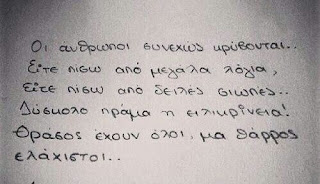 Οι ανθρωποι συνεχως κρύβονται..
Είτε πίσω από μεγάλα λόγια,
είτε πίσω από δειλές σιωπές..
Δύσκολο πράμα η ειλικρίνεια!
Θράσος έχουν όλοι, μα θάρρος
ελάχιστοι..